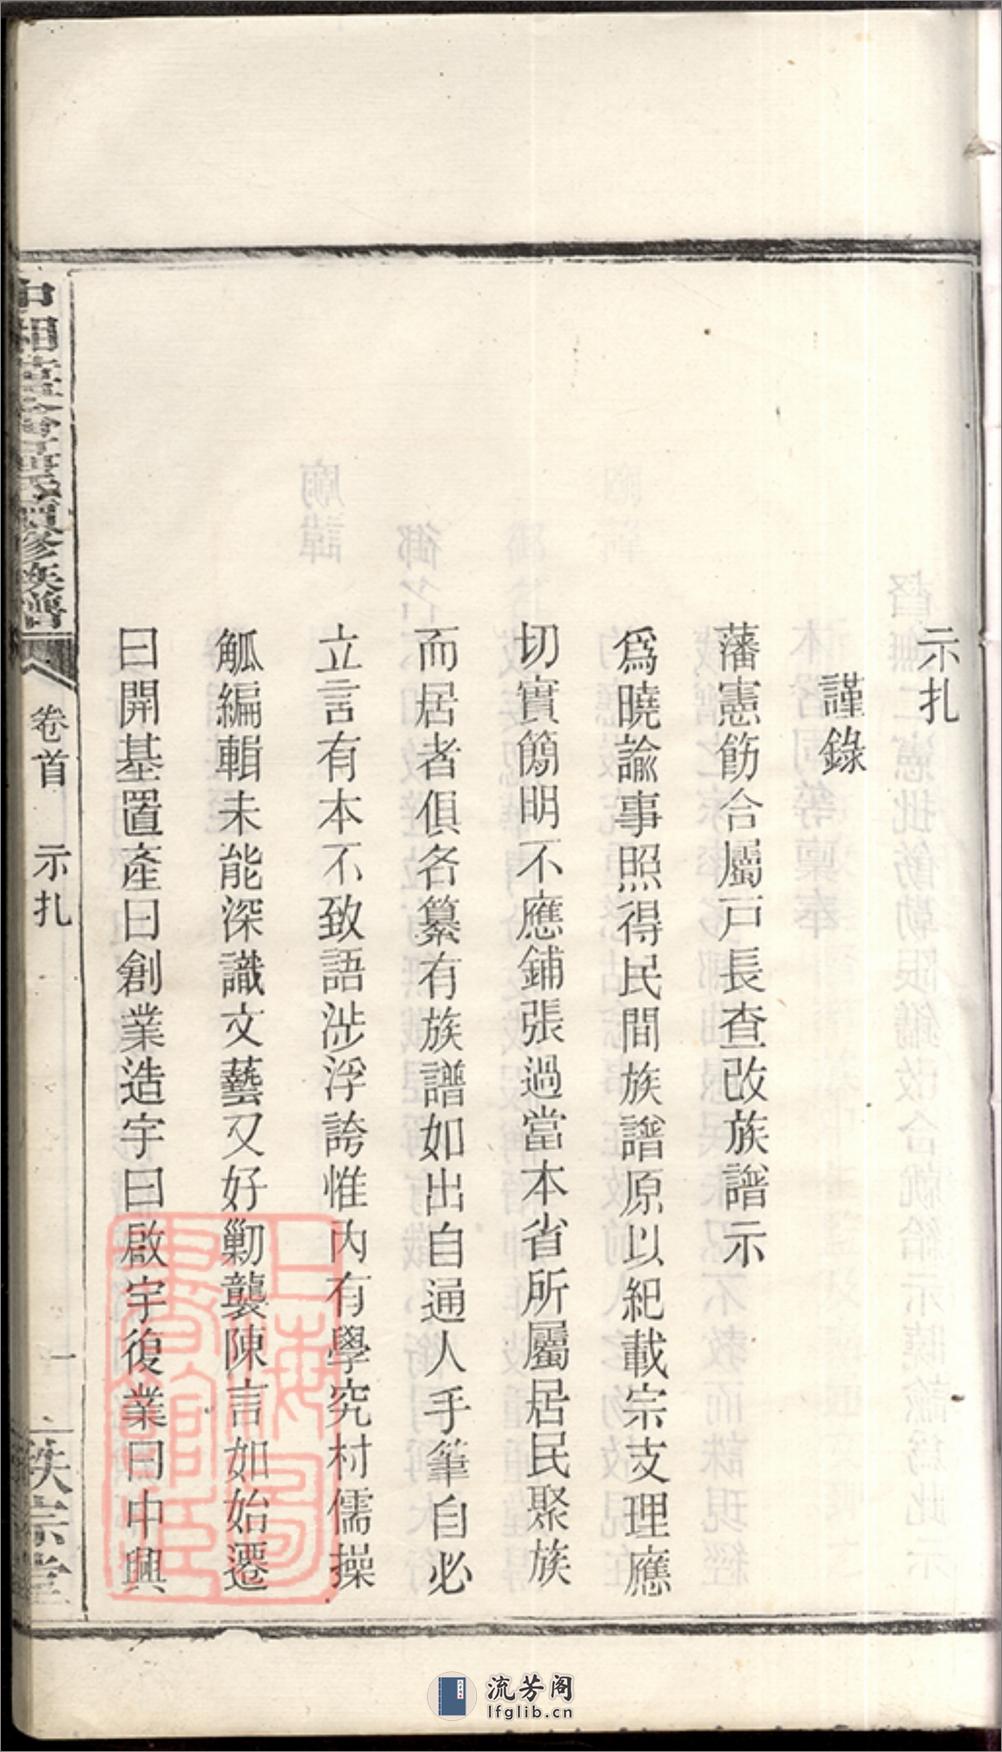 示扎
謹錄
藩憲飭合屬戸長查改族譜示
爲曉諭事照得民間族譜原以紀載宗支理應
切實簡明不應鋪張過當本省所屬居民聚族
而居者俱各纂有族譜如出自通人手筆自必
立言有本不致語涉浮誇惟內有學究村儒操
觚編輯未能深識文藝又好剿襲陳言如始遷
曰開基置產曰創業造宇曰啟宇復業曰中興
修族譜
卷首 示扎
一
上海圖書館藏
流芳阁
lfglib.cn